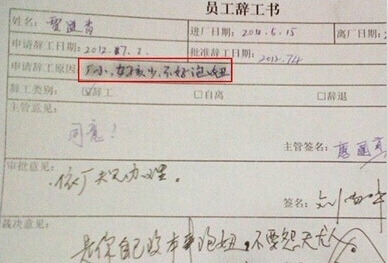 员工辞工书
姓名 进厂日期: 2011.6.15 离厂日期:
申请辞工日期: 2012.7.2. 批准辞工日期: 2012.7.4
申请辞工原因: 厂小,女孩少,不好泡妞
辞工类别: ☑辞工 □自离 □辞退
主管意见:
同意! 主管签名:
审批意见:
依厂规办理。 签名:
裁决意见:
是你自己没本事泡妞,不要怨天尤